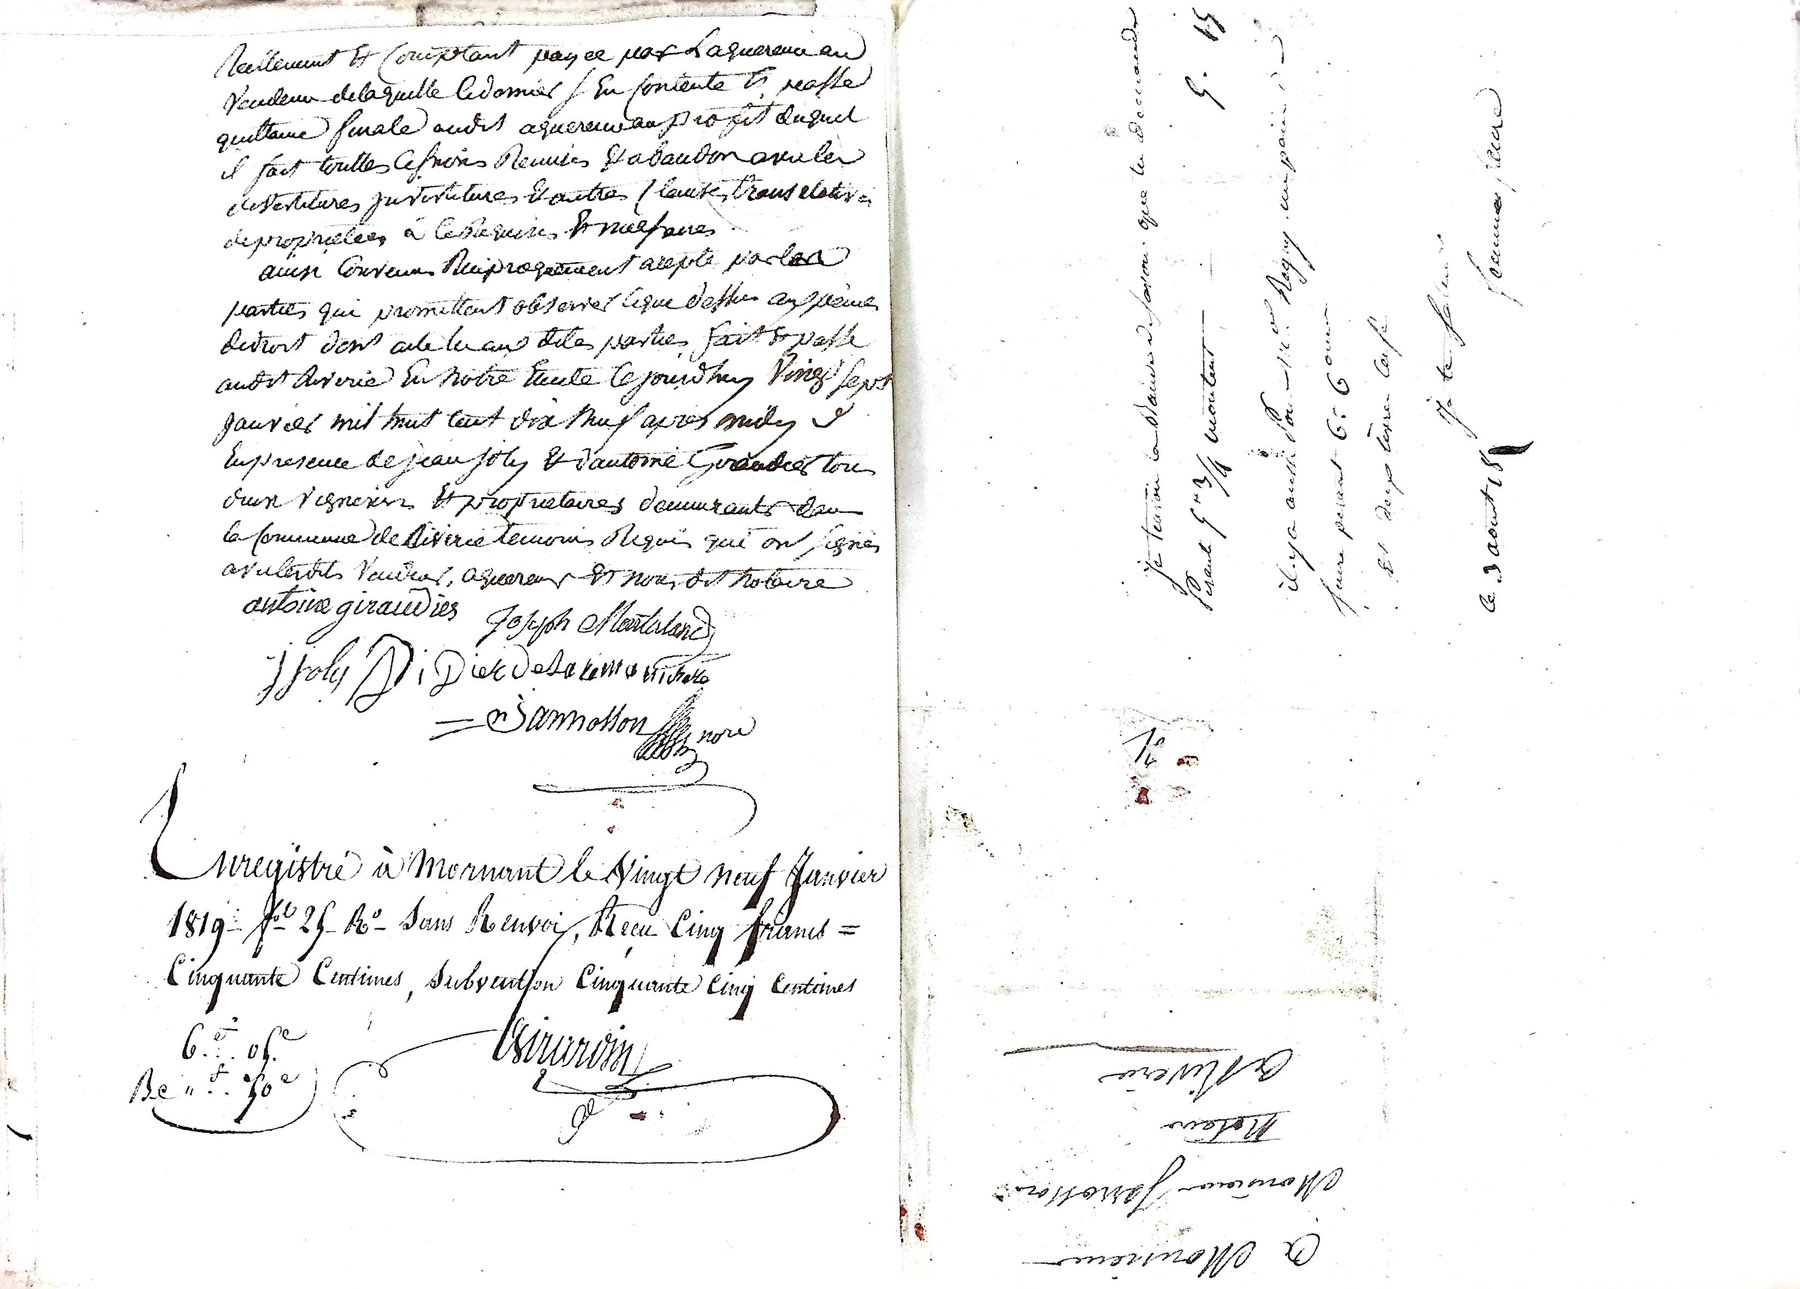 Reellement Et Comptant payee par Laquereur au
Vendeur de laquelle Cedernier S En Contente Et passe
quittance finale audit aquereur au profit duquel
il fait toutes Cessions Remises Et abandon avec les
devestitures investitures Et autres Clauses translatives
de proprietées à Ce Requises Et necessaires
ainsi Convenu Reciproquement accepté par les
parties qui promettent observer Ceque dessus aux peines
dedroit dont acte lu aux dites parties, fait Et passé
audit Riverie En notre Etude Cejourdhuy Vingt sept
janvier mil huit Cent dix Neuf apres midy Et
En presence de jean joly Et d'antoine Giraudier tous
deux vignerons Et proprietaires demeurants dans
la Commune de Riverie temoins Requis qui ont signés
avec lesdits Vendeur, aquereur Et nous dit Notaire
antoine giraudier Joseph Montaland
j joly Didier Delarimonniere
Jannosson nore
Enregistré à Mornant le Vingt neuf Janvier
1819 fol 25 Ro Sans Renvoi, Reçu Cinq francs =
Cinquante Centimes, Subvention Cinquante Cinq Centimes
6.f.. 05.c
Girardin
Je tenvoi le que tu demande
Pesant 5 3/4 montent 5. 15
il y a aussi
pesant 6 6
Et deux
Je te salue
le 3 aout 18
femme
A Monsieur
Monsieur Jannosson
Notaire
A Riverie